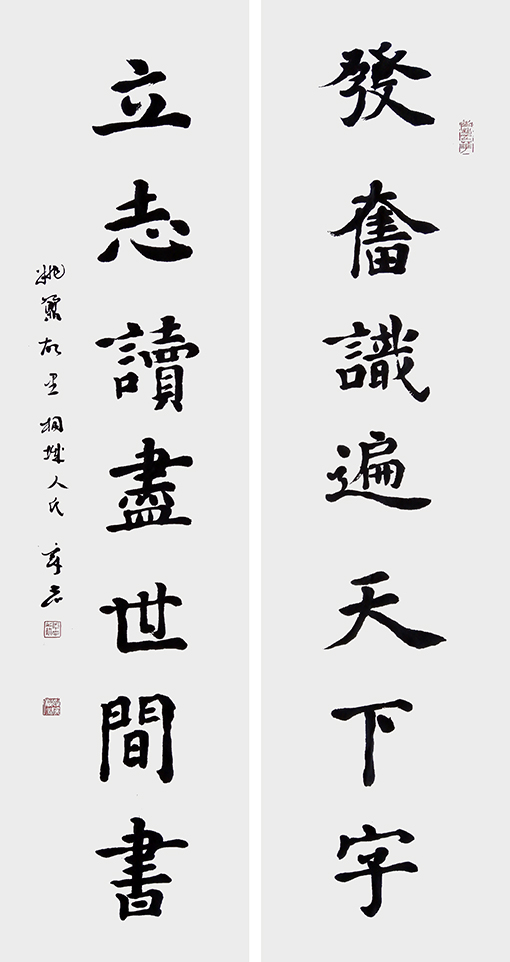 發奮識遍天下字
立志讀盡世間書
姚鼐故里桐城人氏